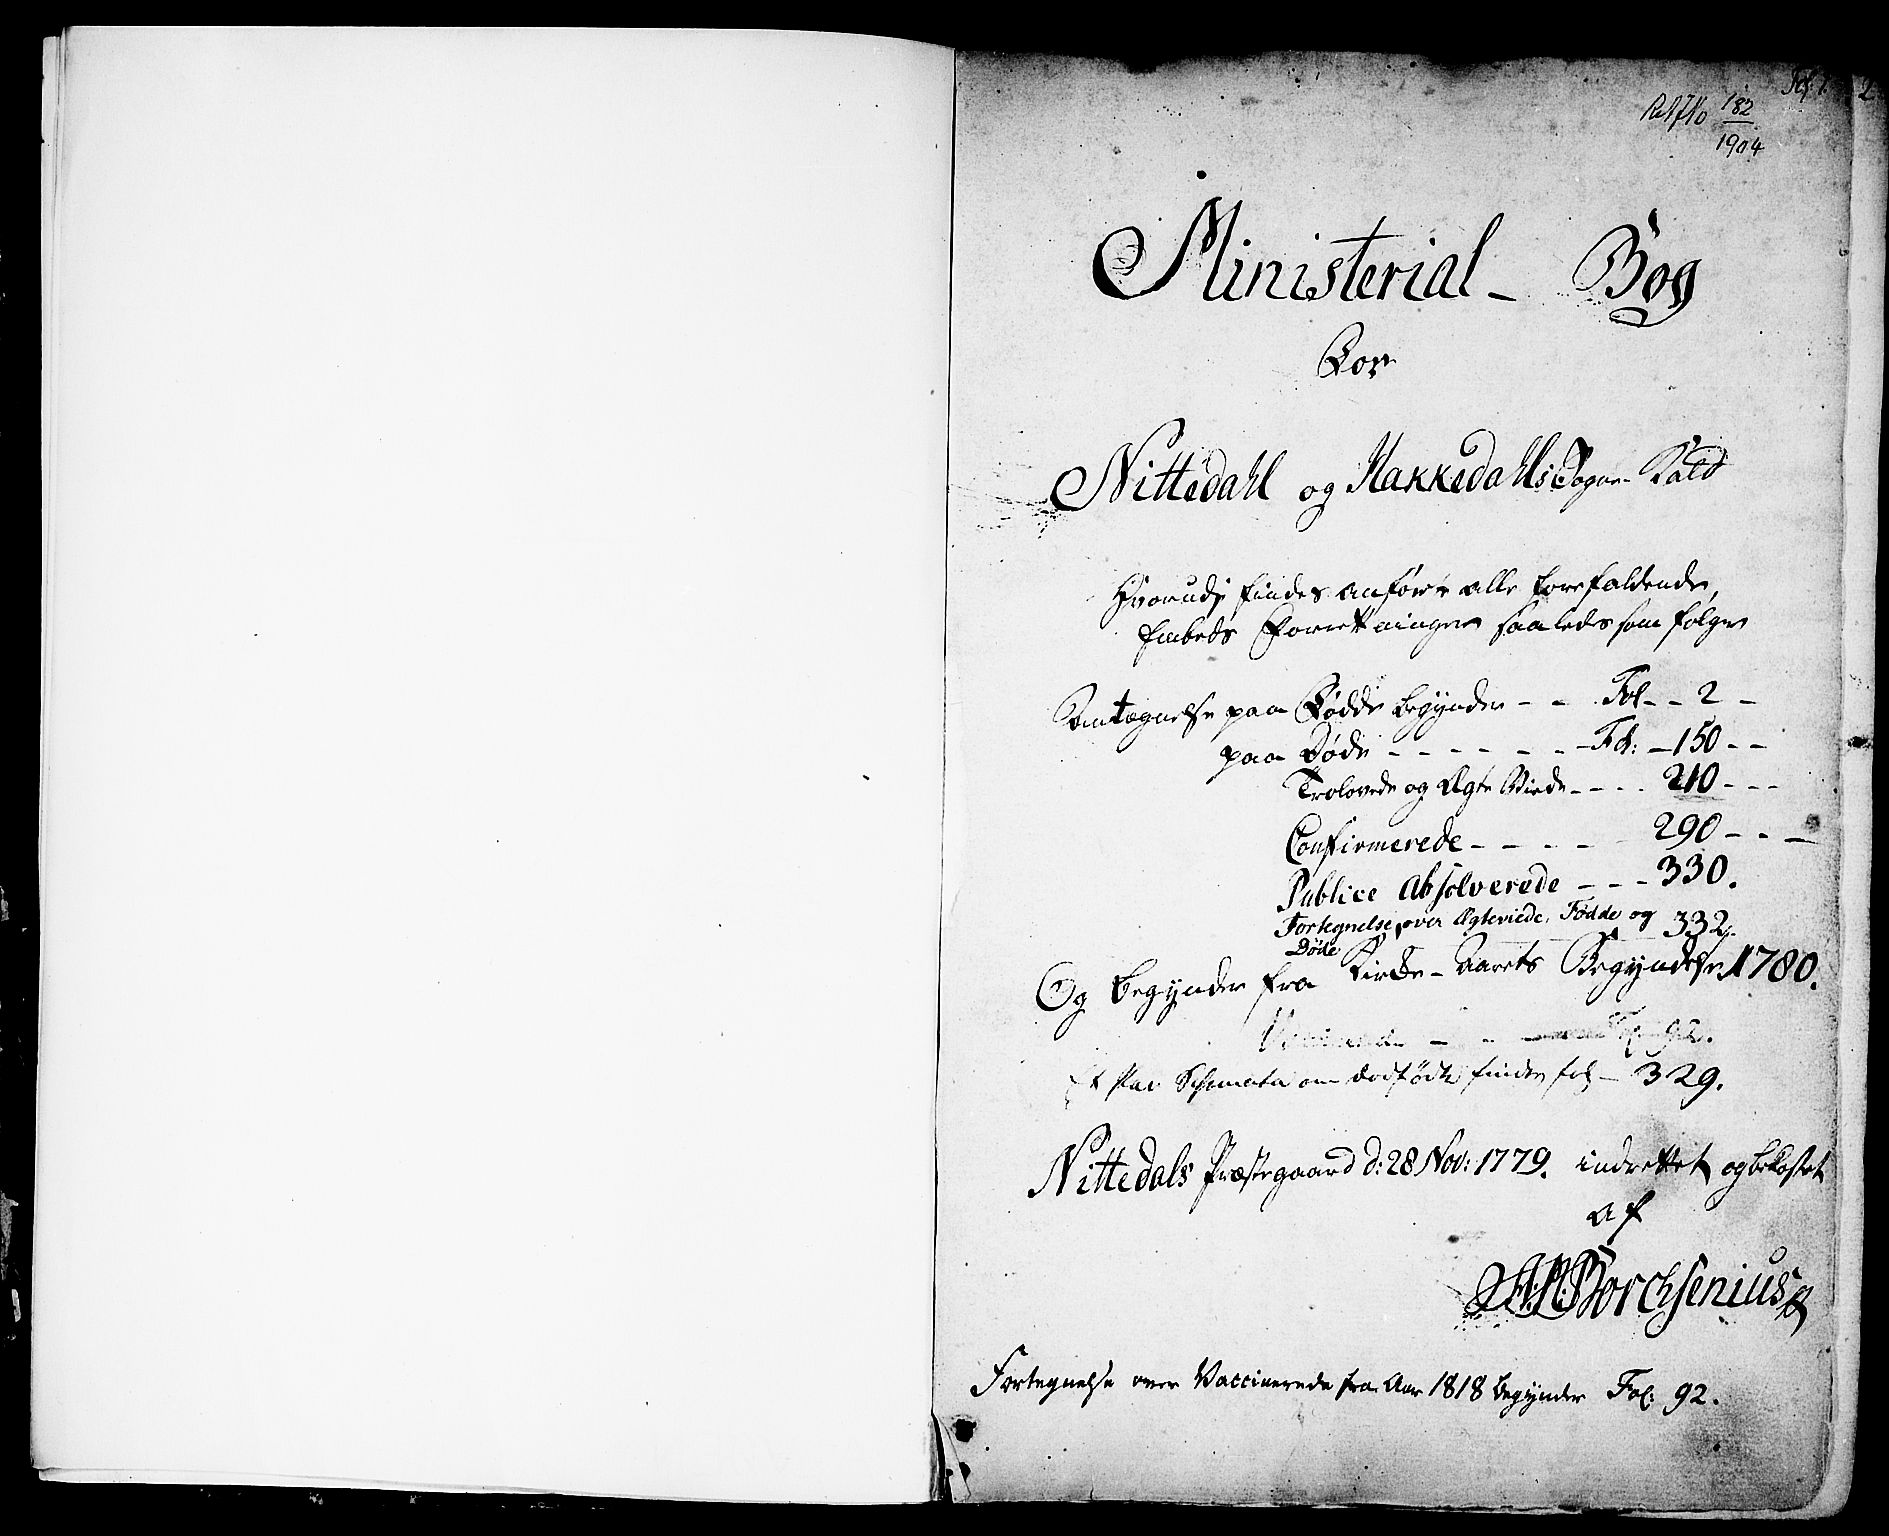 Fol. 1.
2
182
1904
Ministerial - Bog
For
Nittedahl og Hakkedahls Sogne-Kald
Hvorudj findes anført alle forefaldende
Embeds Forretninger saaledes som følger
Antegnelse paa Fødde begynder - - Fol - - 2 -
paa Døde - - - - - - - Fol: - 150 - -
Trolovede og Ægte Viede - - - - 210 - - -
Confirmerede - - - - - 290 - - -
Publice Absolverede - - - 330.
Fortegnelse over Ægteviede, Fødde og 332.
Døde
Og begynder fra Kirke-Aarets Begyndelse 1780.
Fol. 92.
Et Par Schemata om dødfødte findes fol - 329.
Nittedals Præstegaard d: 28 Nov: 1779. indrettet og bekostet
af
Borchsenius
Fortegnelse over Vaccinerede fra Aar 1818 begynder Fol: 92.